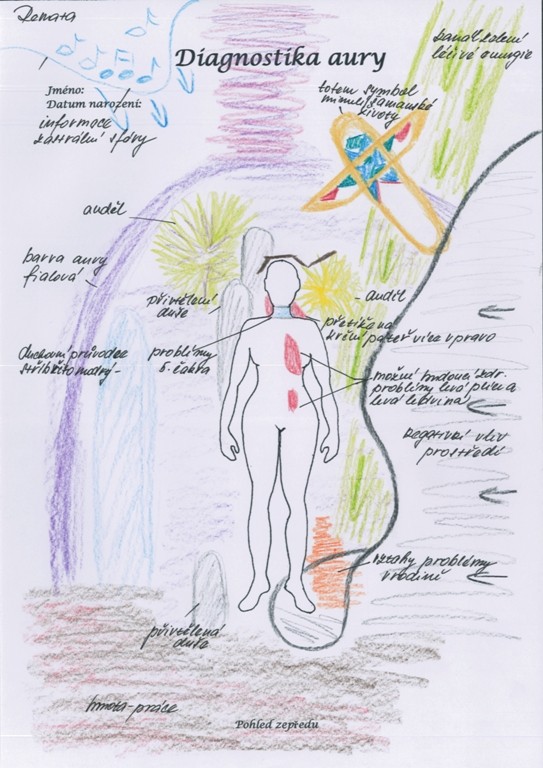 Renata
kanál zelené
léčivé energie
Diagnostika aury
totem symbol
minulé šamanské
životy
Jméno:
Datum narození:
informace
z astrální sféry
anděl
barva aury
fialová
přivtělení
duše
- anděl
přetížená
krční páteř více vpravo
Duchovní průvodce
stříbřitomodrý -
problémy
5. čakra
možné budoucí zdr.
problémy levá plíce a
levá ledvina
negativní vliv
prostředí
vztahy problémy
v rodině
přivtělená
duše
hmota - práce
Pohled zepředu